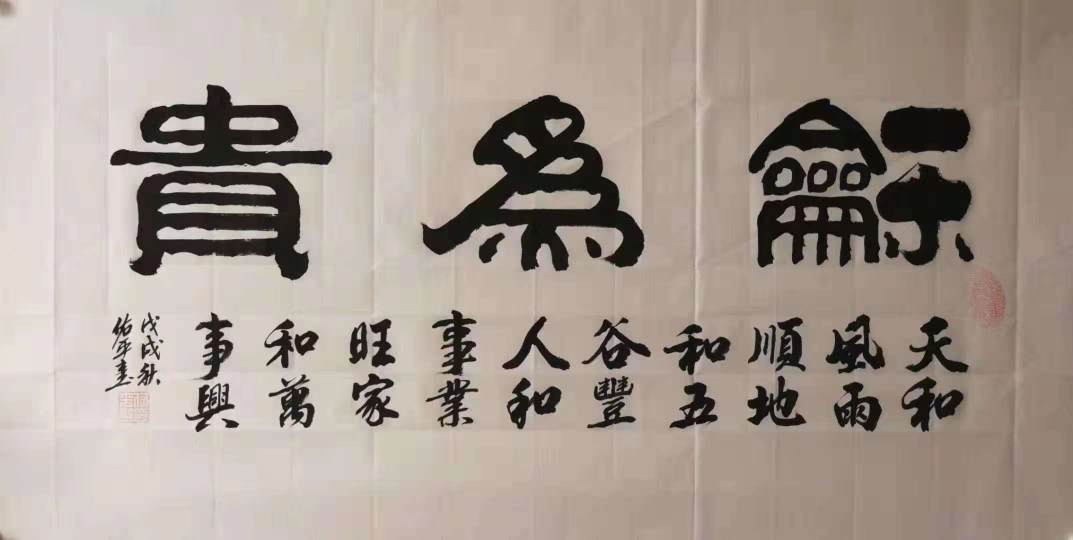 龢為貴
天和
風雨
順地
和五
谷豐
人和
事業
旺家
和萬
事興
戊戌秋